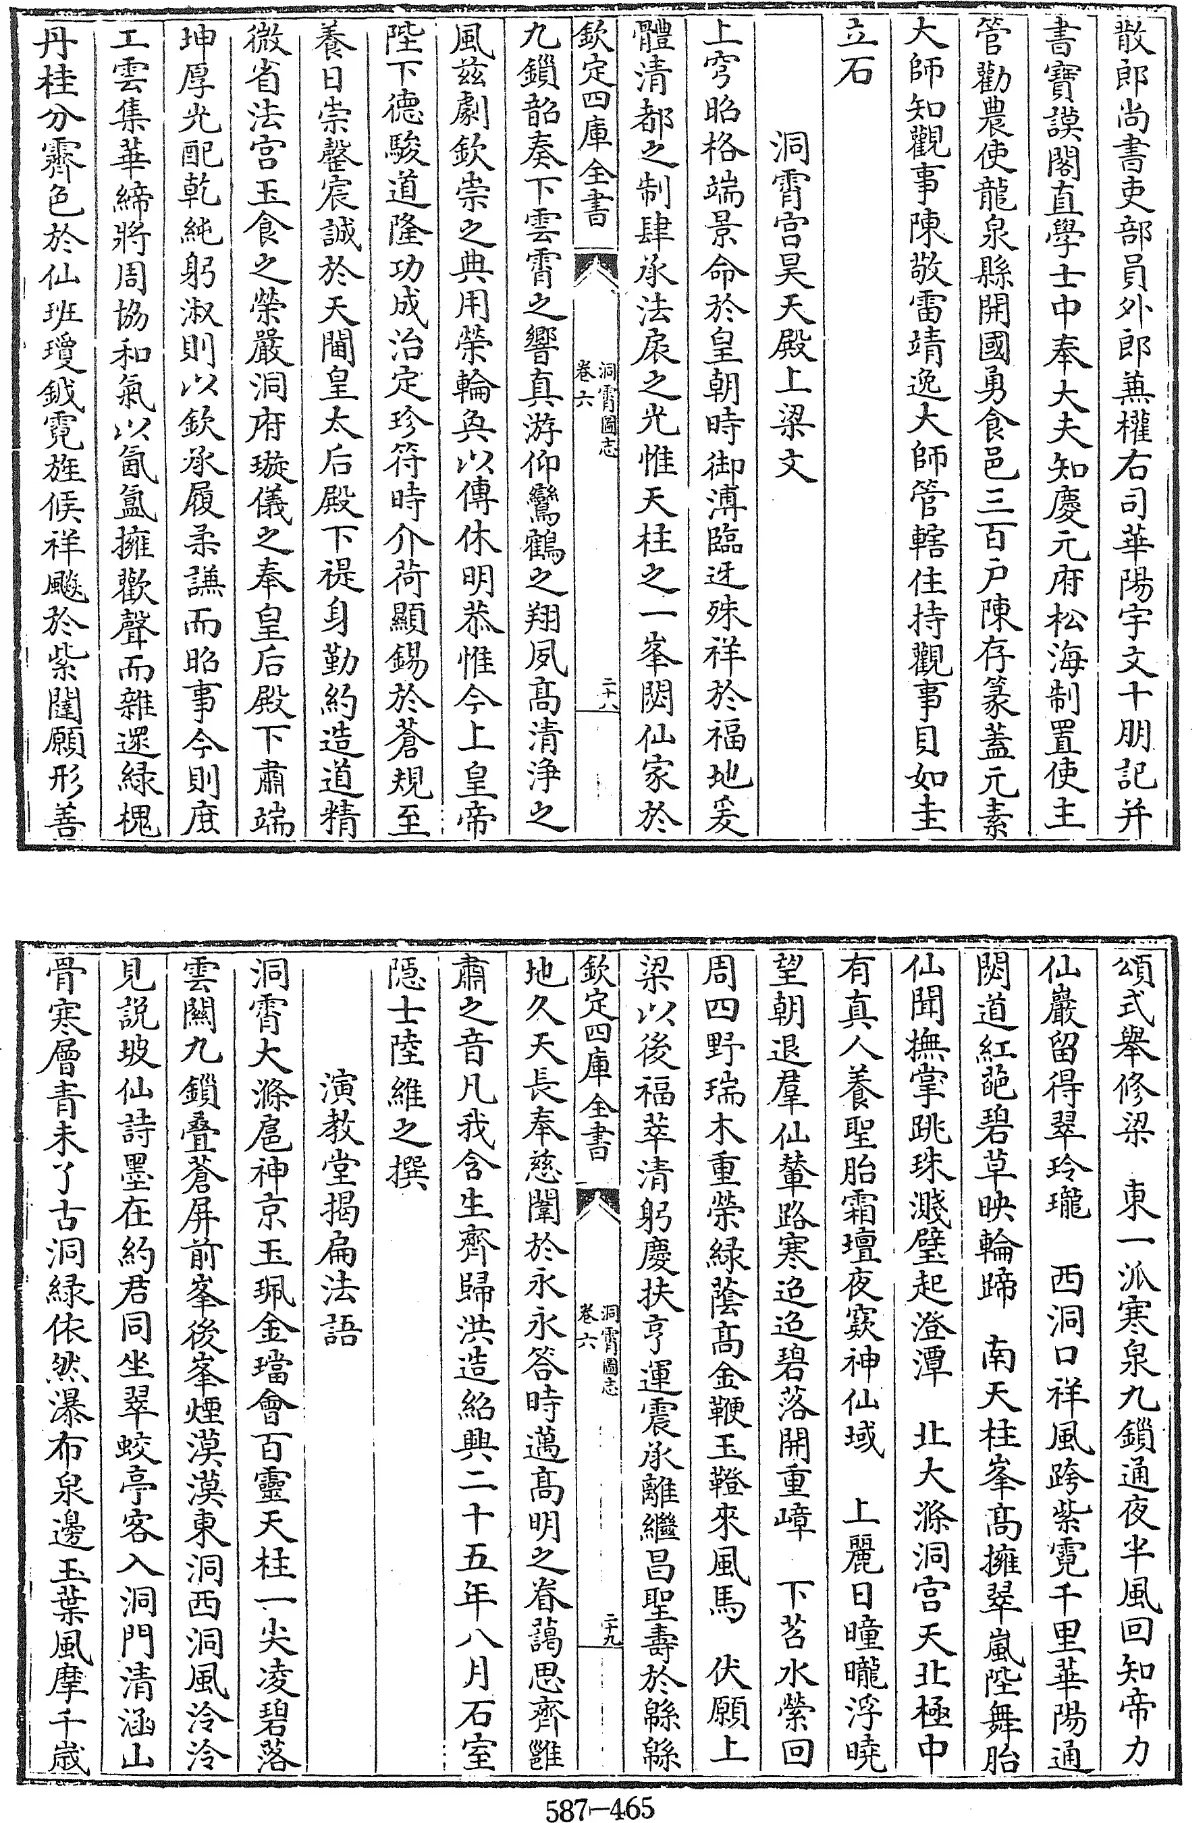 散郎尚書吏部員外郎兼權右司華陽宇文十朋記并
書寶謨閣直學士中奉大夫知慶元府松海制置使主
管勸農使龍泉縣開國勇食邑三百戶陳存篆蓋元素
大師知觀事陳敬雷靖逸大師管轄住持觀事貝如圭
立石
洞霄宮昊天殿上梁文
上穹昭格端景命於皇朝時御溥臨迓殊祥於福地爰
體清都之制肆承法扆之光惟天柱之一峯閟仙家於
欽定四庫全書
洞霄圖志
卷六
二十八
九鎖韶奏下雲霄之響真游仰鸞鶴之翔夙髙清浄之
風兹劇欽崇之典用榮輪奐以傳休明恭惟今上皇帝
陛下德駿道隆功成治定珍符時介荷顯錫於蒼規至
養日崇罄宸誠於天闈皇太后殿下禔身勤約造道精
微省法宫玉食之榮嚴洞府璇儀之奉皇后殿下肅端
坤厚光配乾純躬淑則以欽承履柔謙而昭事今則庶
工雲集華締將周協和氣以氤氲擁歡聲而雜遝緑槐
丹桂分霽色於仙班瓊鉞霓旌候祥飈於紫闥願形善
頌式舉修梁　東一派寒泉九鎖通夜半風回知帝力
仙巖留得翠玲瓏　西洞口祥風跨紫霓千里華陽通
閟道紅葩碧草映輪蹄　南天柱峯髙擁翠嵐陛舞胎
仙聞撫掌跳珠濺璧起澄潭　北大滌洞宫天北極中
有真人養聖胎霜壇夜窾神仙域　上麗日曈曨浮曉
望朝退羣仙輦路寒迢迢碧落開重嶂　下苕水縈回
周四野瑞木重榮緑蔭髙金鞭玉鐙來風馬　伏願上
梁以後福萃清躬慶扶亨運震承離繼昌聖壽於緜緜
欽定四庫全書
洞霄圖志
卷六
二十九
地久天長奉慈闈於永永答時邁髙明之眷藹思齊雝
肅之音凡我含生齊歸洪造紹興二十五年八月石室
隠士陸維之撰
演教堂揭扁法語
洞霄大滌扈神京玉珮金璫會百靈天柱一尖凌碧落
雲關九鎖疊蒼屏前峯後峯煙漠漠東洞西洞風泠泠
見説坡仙詩墨在約君同坐翠蛟亭客入洞門清涵山
骨寒層青未了古洞緑依然瀑布泉邊玉葉風摩千歳
587-465